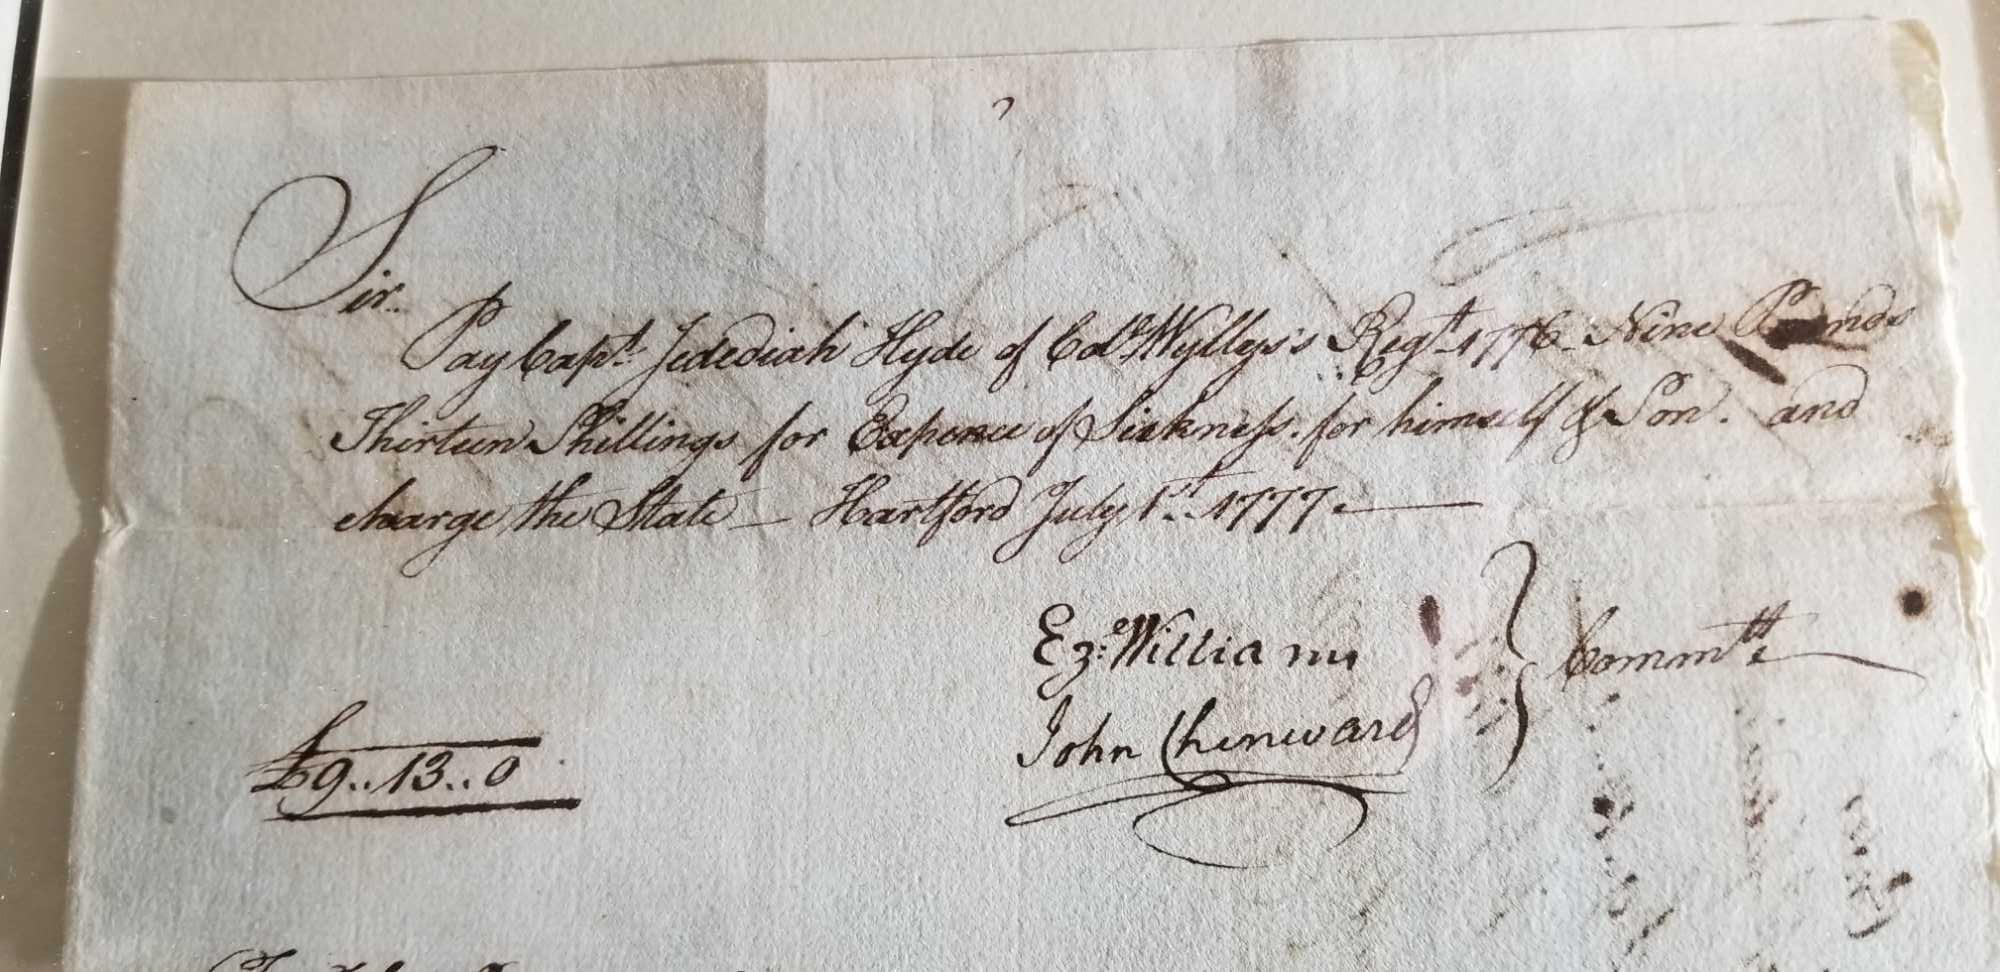 Sir..
Pay Capt. Jedediah Hyde of Colo. Wyllys's Regt. 1776 Nine Pounds
Thirteen Shillings for Expence of Sickness. for himself & Son. and
charge the State — Hartford July 1st. 1777. —
Ez: Williams
John Chenward } Commtte
£9..13..0